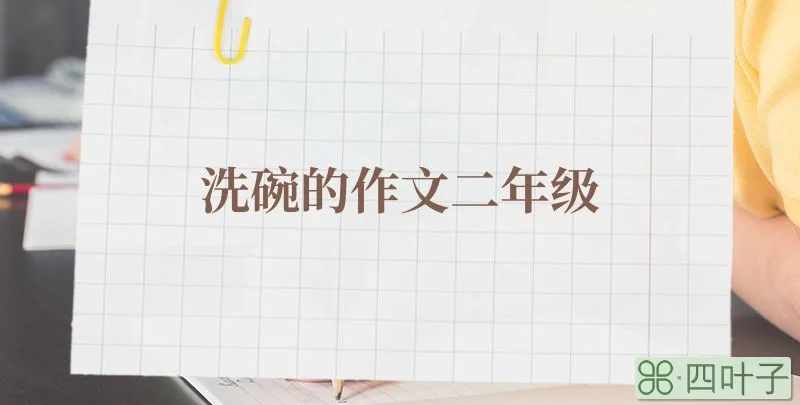 洗碗的作文二年级
四叶子